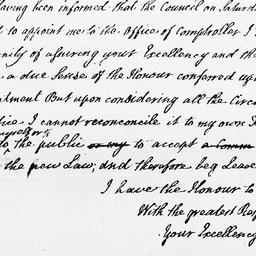 aving been informed that the Council on Saturda
d to appoint me to the Office of Comptroller I
nity of assuring your Excellency and th
a due Sense of the Honour conferred up
ntment But upon considering all the Circu
tice I cannot reconcile it to my own
the public or my to accept a Comm
the new Law; and therefore beg Leave
I have the Honour to
With the greatest Res
Your Excellency